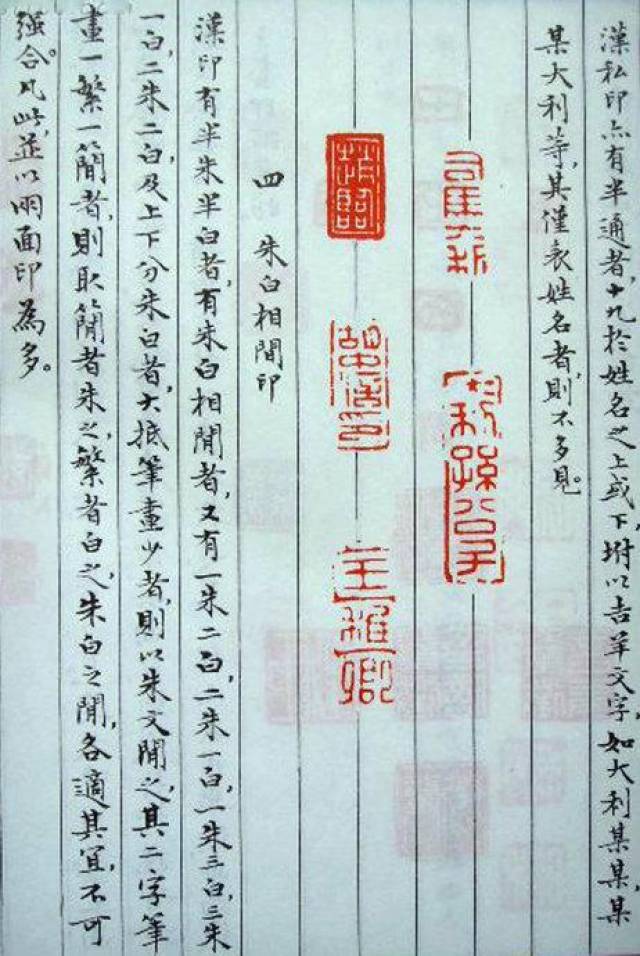 漢私印亦有半通者十九於姓名之上或下,坿以吉羊文字,如大利某某,某
某大利等,其僅表姓名者,則不多見。
王雅卿
四 朱白相間印
漢印有半朱半白者,有朱白相間者,又有一朱二白,二朱一白,一朱三白,三朱
一白,二朱二白,及上下分朱白者,大抵筆畫少者,則以朱文間之,其二字筆
畫一繁一簡者,則取簡者朱之,繁者白之,朱白之間,各適其宜,不可
强合。凡此,並以兩面印為多。